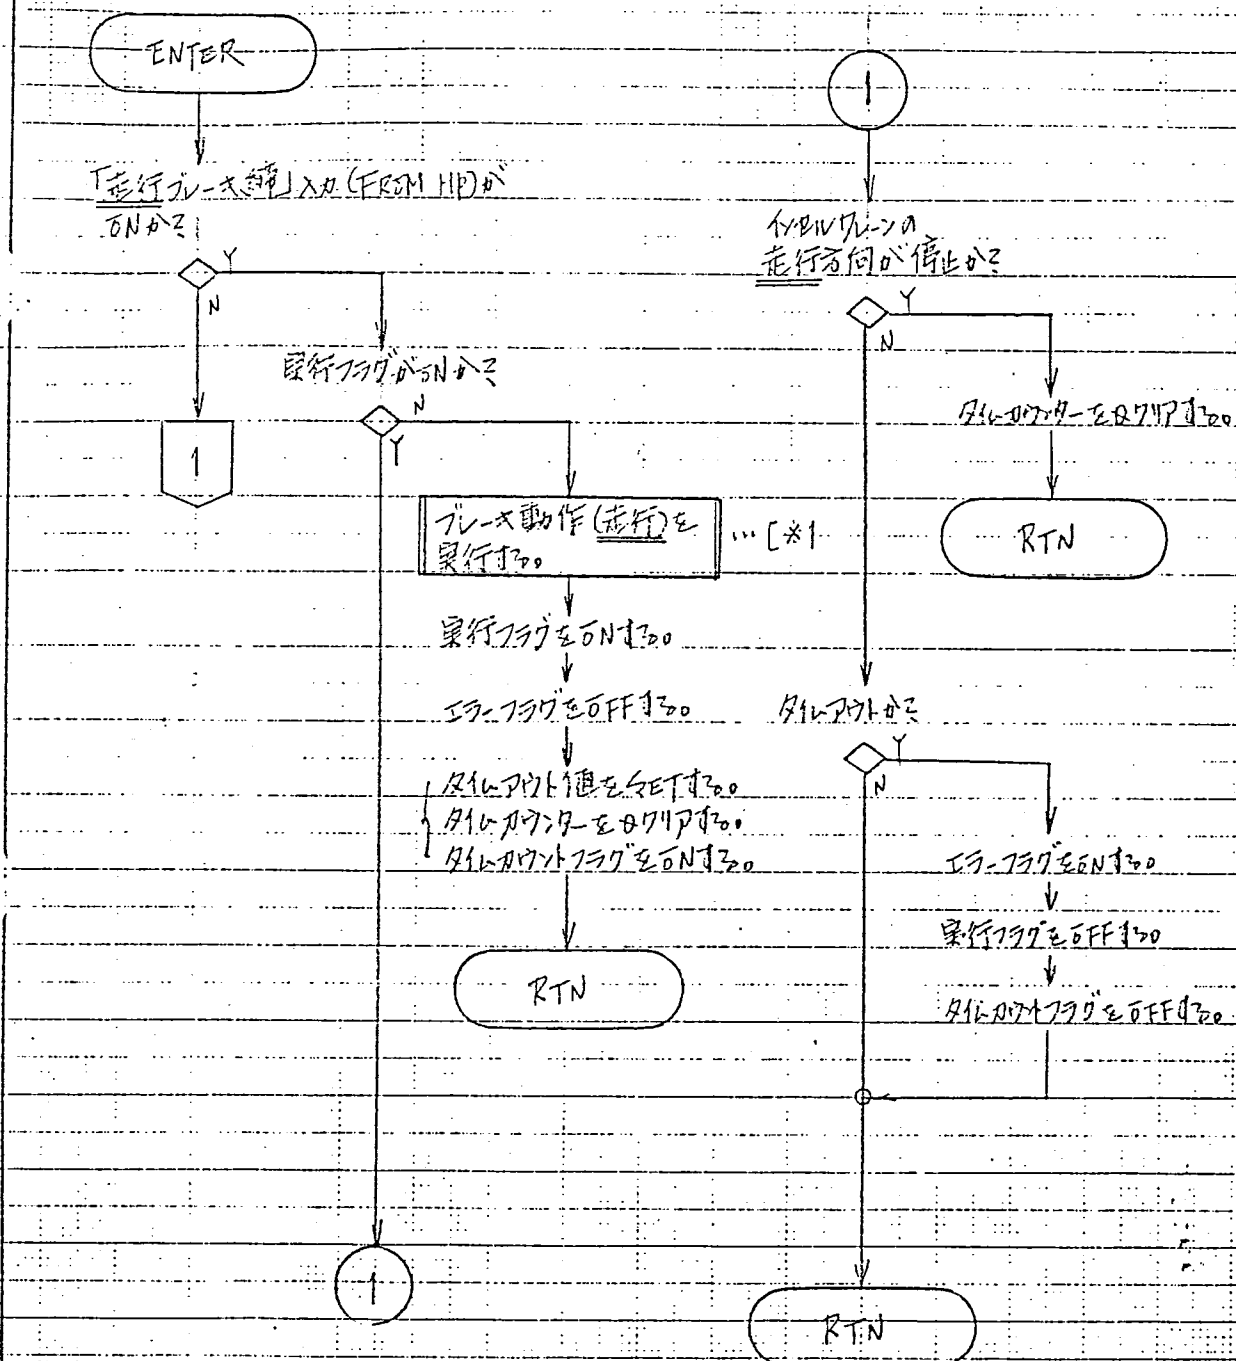 ENTER
「走行ブレーキ締」入力 (FROM HP)が
ONか?
Y
N
実行フラグがONか?
N
Y
1
ブレーキ動作(走行)を
実行する。
…[※1
実行フラグをONする。
エラーフラグをOFFする。
タイムアウト値をSETする。
タイムカウンターを0クリアする。
タイムカウントフラグをONする。
RTN
1
1
クレーンの
走行方向が停止か?
Y
N
タイムカウンターを0クリアする。
RTN
タイムアウトか?
Y
N
エラーフラグをONする。
実行フラグをOFFする。
タイムカウントフラグをOFFする。
RTN